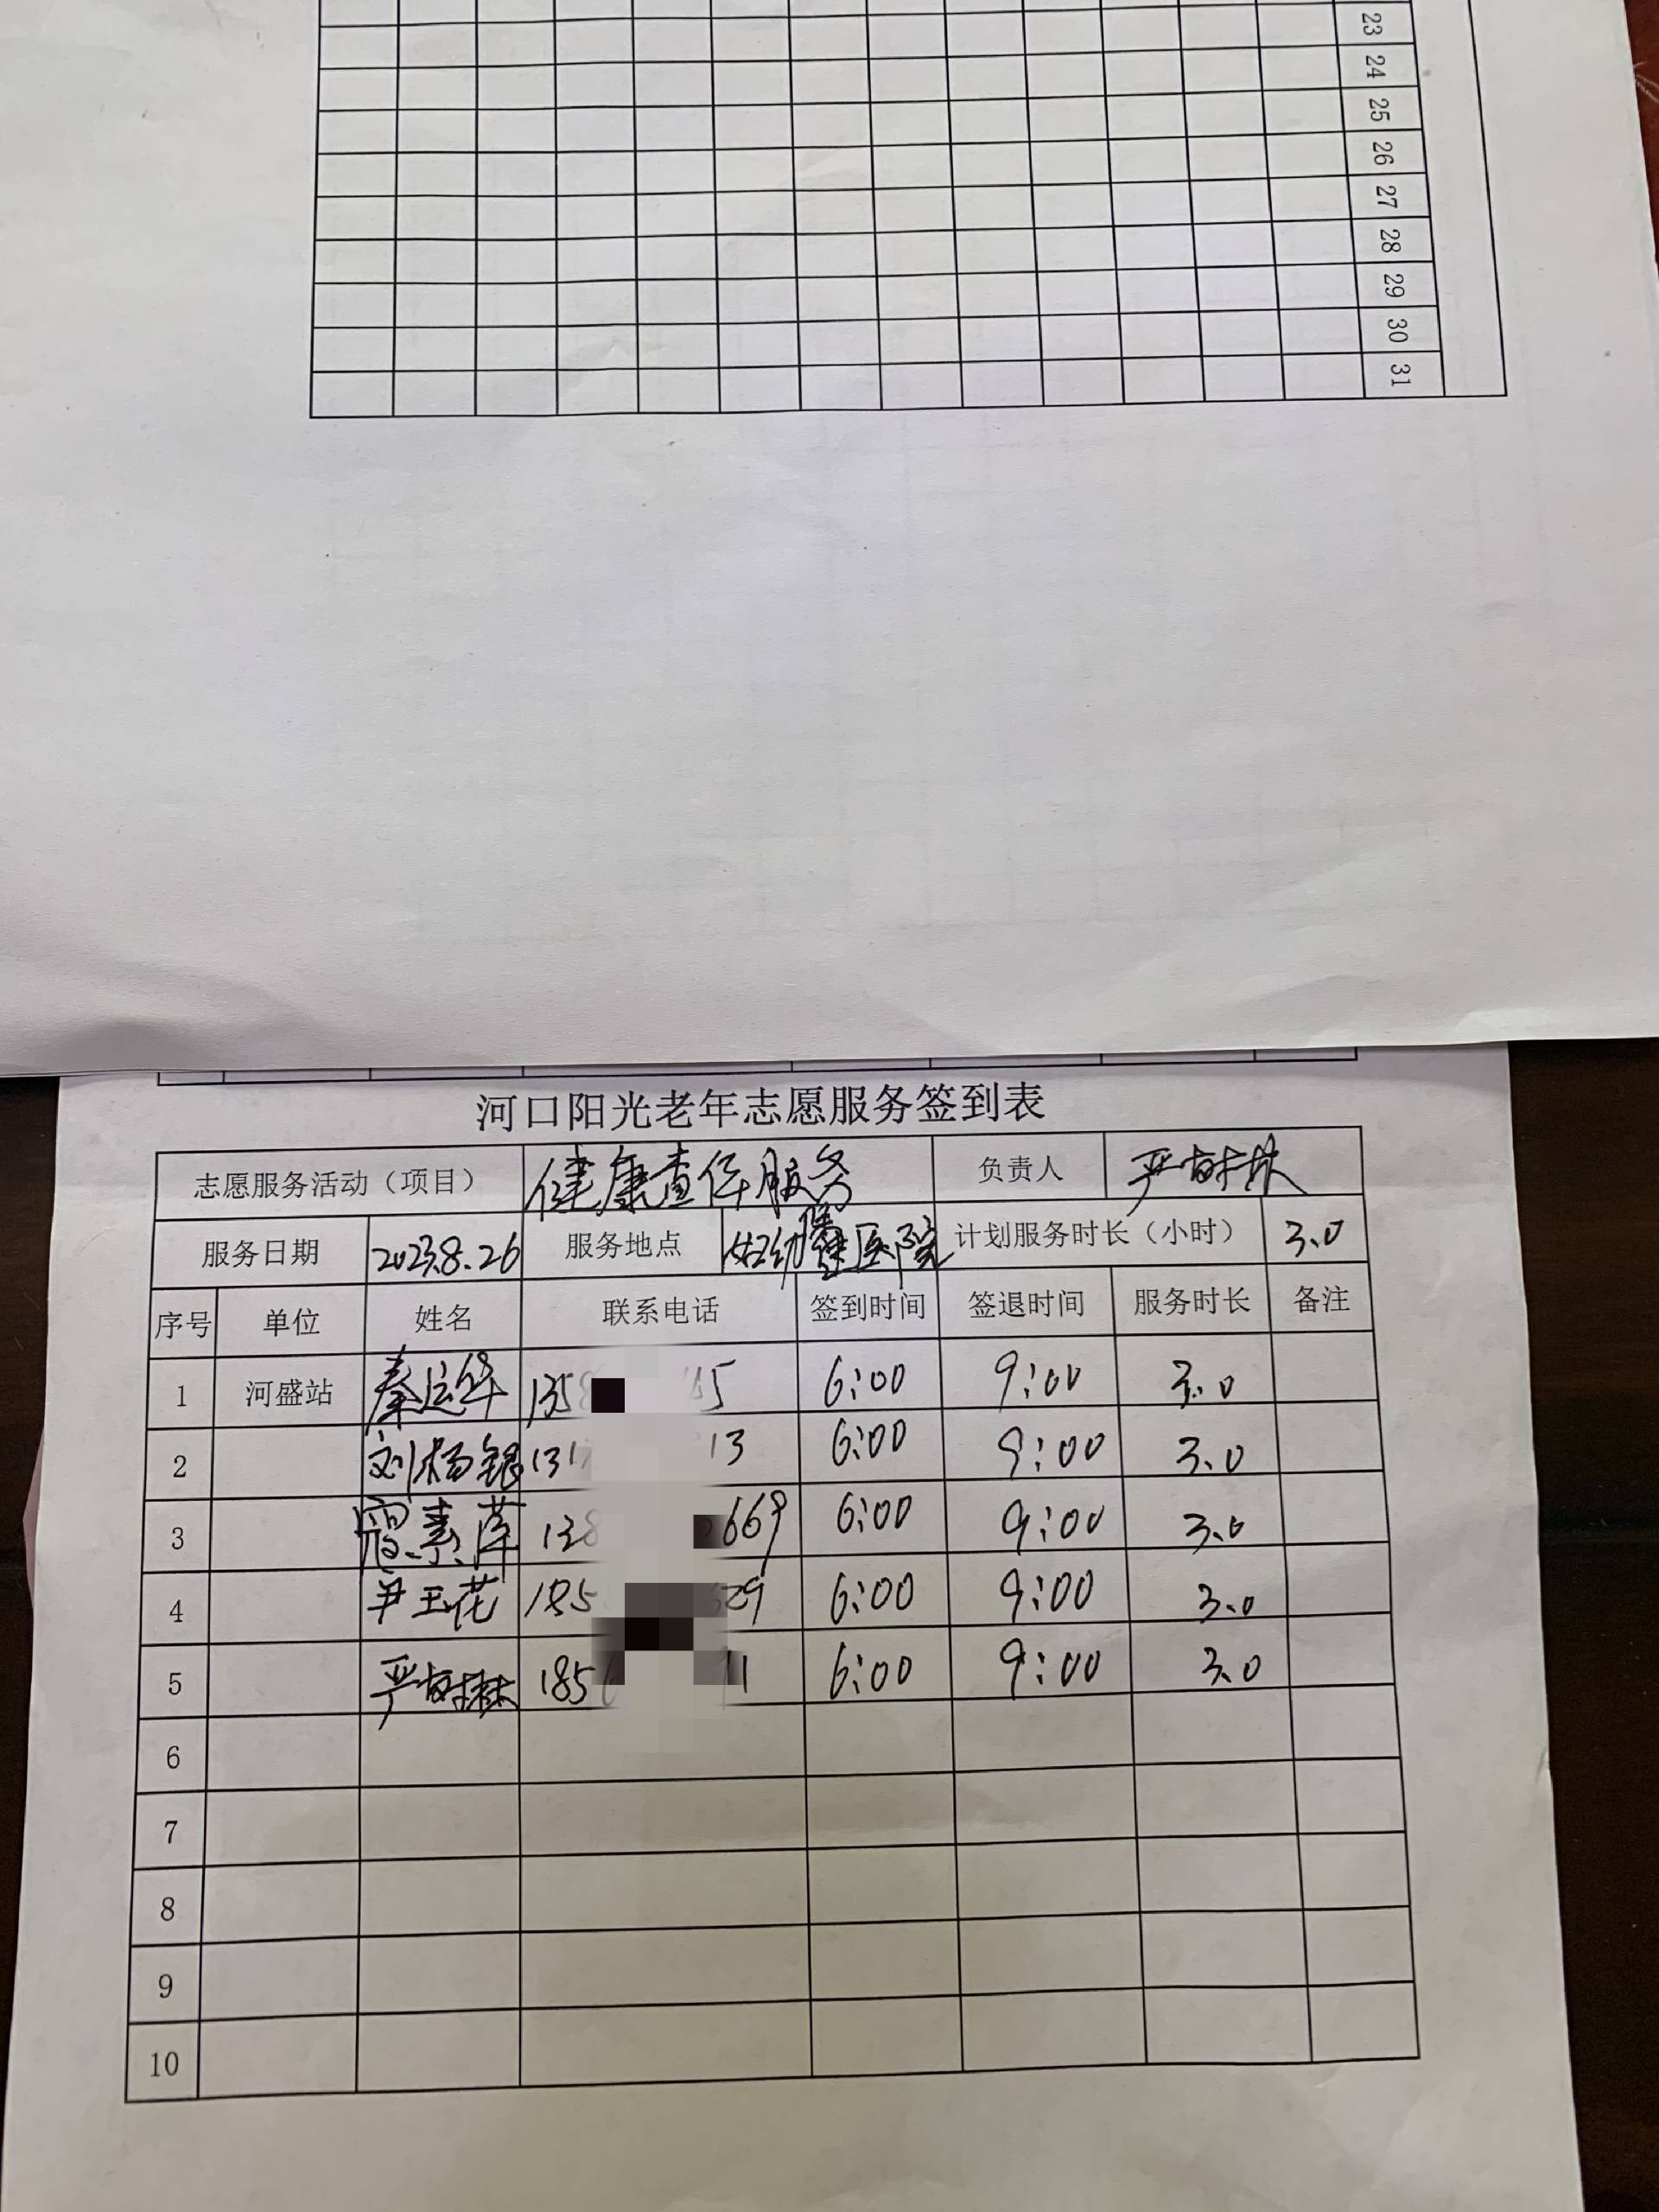 23
24
25
26
27
28
29
30
31
河口阳光老年志愿服务签到表
志愿服务活动（项目） 健康查体服务 负责人 严树林
服务日期 2023.8.26 服务地点 妇幼保健医院 计划服务时长（小时） 3.0
序号 单位 姓名 联系电话 签到时间 签退时间 服务时长 备注
1 河盛站 秦运华 135 5 6:00 9:00 3.0
2 刘杨银 131 13 6:00 9:00 3.0
3 寇素萍 138 669 6:00 9:00 3.0
4 尹玉花 185 29 6:00 9:00 3.0
5 严树林 185 11 6:00 9:00 3.0
6
7
8
9
10